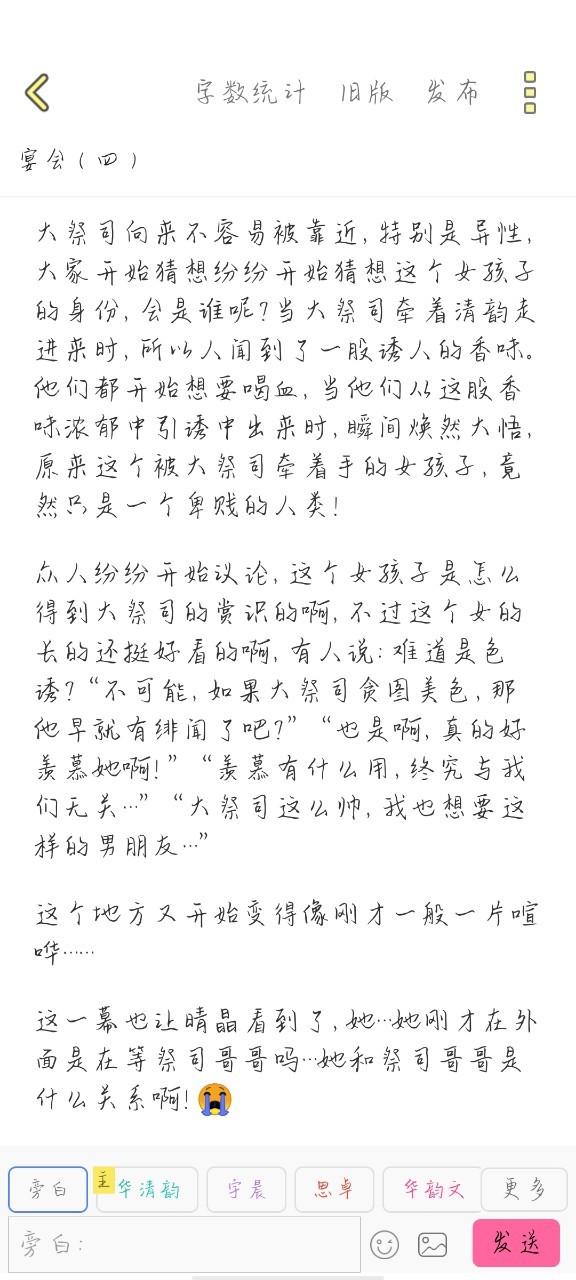 字数统计 旧版 发布
宴会(四)
大祭司向来不容易被靠近,特别是异性,
大家开始猜想纷纷开始猜想这个女孩子
的身份,会是谁呢?当大祭司牵着清韵走
进来时,所以人闻到了一股诱人的香味。
他们都开始想要喝血,当他们从这股香
味浓郁中引诱中出来时,瞬间焕然大悟,
原来这个被大祭司牵着手的女孩子,竟
然只是一个卑贱的人类!
众人纷纷开始议论,这个女孩子是怎么
得到大祭司的赏识的啊,不过这个女的
长的还挺好看的啊,有人说:难道是色
诱?“不可能,如果大祭司贪图美色,那
他早就有绯闻了吧?”“也是啊,真的好
羡慕她啊!”“羡慕有什么用,终究与我
们无关…”“大祭司这么帅,我也想要这
样的男朋友…”
这个地方又开始变得像刚才一般一片喧
哗……
这一幕也让晴晶看到了,她…她刚才在外
面是在等祭司哥哥吗…她和祭司哥哥是
什么关系啊!😭
旁白 主 华清韵 宇晨 思卓 华韵文 更多
旁白: 发送